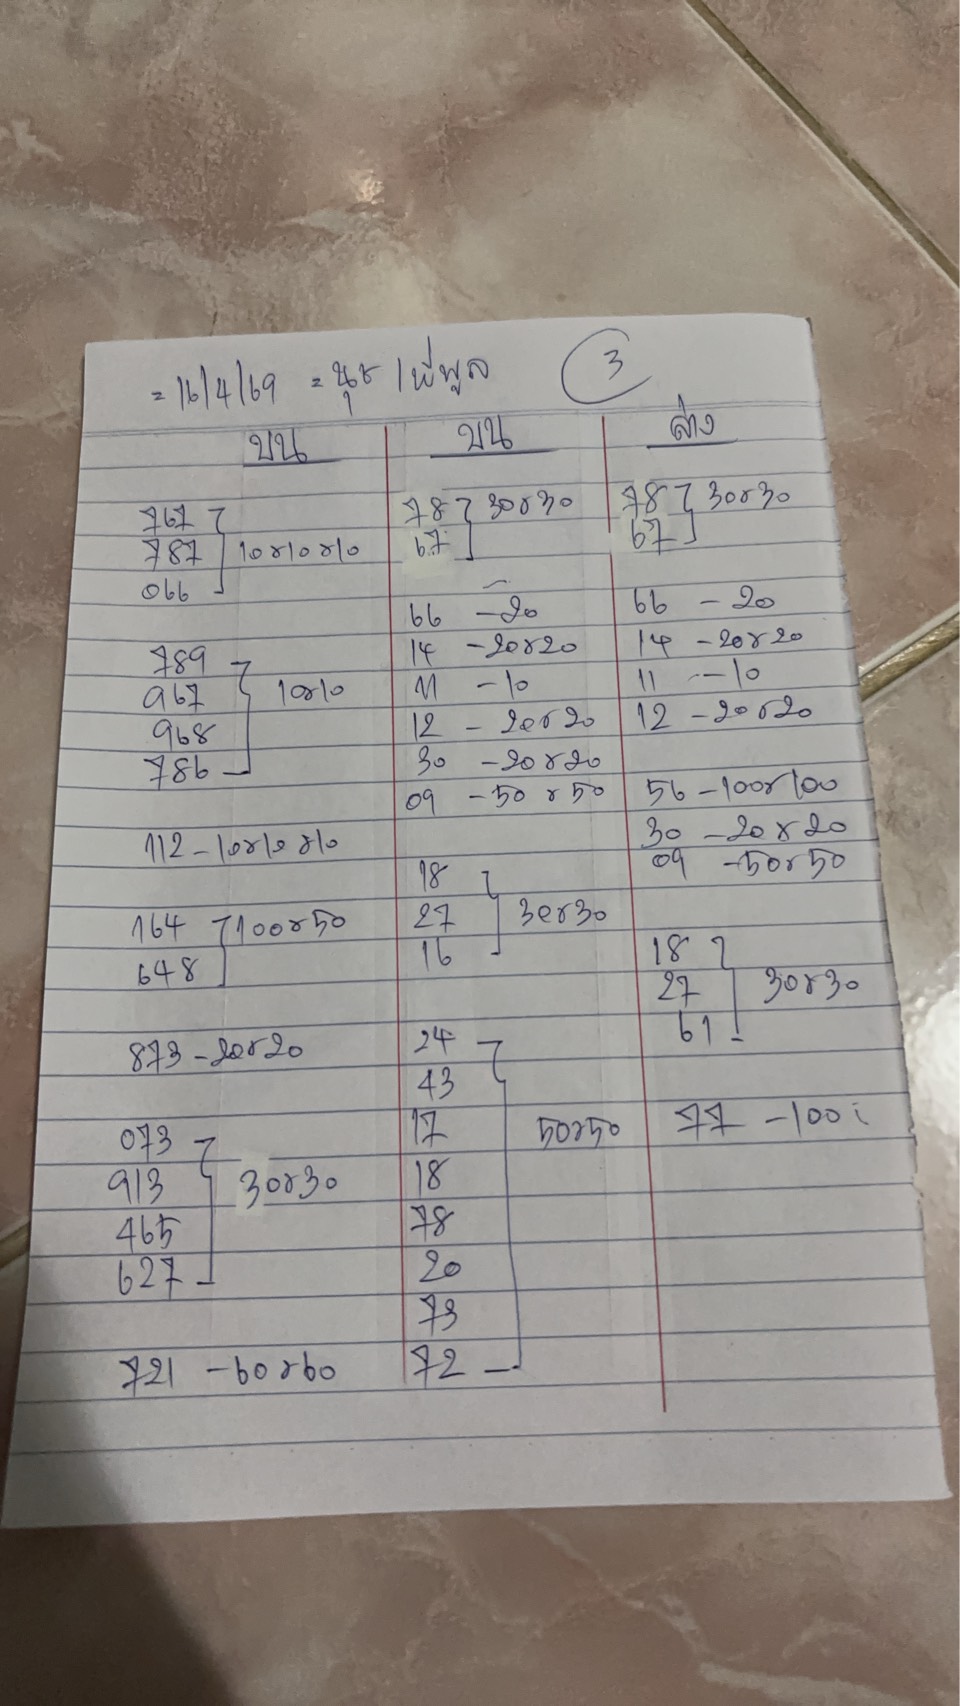 = 16/4/69 = นุช / พี่พูล
3
บน
767
787 10x10x10
066
789
967 10x10
968
786
112 - 10x10x10
164 100x50
648
873 - 20x20
073
913 30x30
465
627
721 - 60x60
บน
78 30x30
67
66 - 20
14 - 20x20
11 - 10
12 - 20x20
30 - 20x20
09 - 50x50
18
27 30x30
16
24
43
17 50x50
18
78
20
73
72
ล่าง
78 30x30
67
66 - 20
14 - 20x20
11 - 10
12 - 20x20
56 - 100x100
30 - 20x20
09 - 50x50
18
27 30x30
61
77 - 100